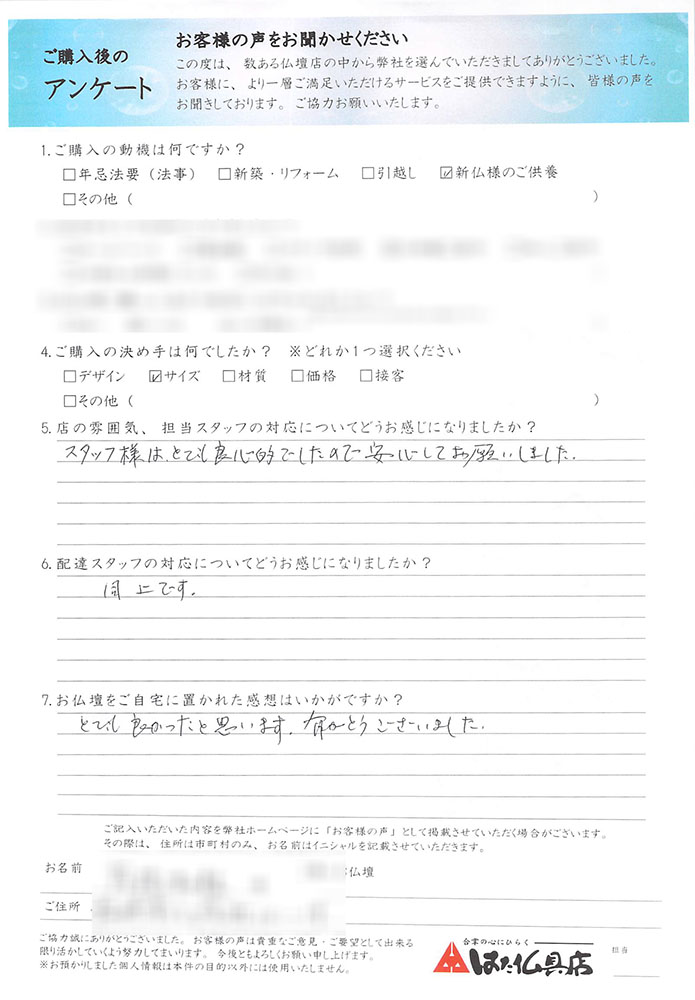 ご購入後の
アンケート
お客様の声をお聞かせください
この度は、数ある仏壇店の中から弊社を選んでいただきましてありがとうございました。
お客様に、より一層ご満足いただけるサービスをご提供できますように、皆様の声を
お聞きしております。ご協力お願いいたします。
1.ご購入の動機は何ですか？
□年忌法要（法事） □新築・リフォーム □引越し ☑新仏様のご供養
□その他（ ）
4.ご購入の決め手は何でしたか？ ※どれか1つ選択ください
□デザイン ☑サイズ □材質 □価格 □接客
□その他（ ）
5.店の雰囲気、担当スタッフの対応についてどうお感じになりましたか？
スタッフ様は、とても良心的でしたので安心してお願いしました.
6.配達スタッフの対応についてどうお感じになりましたか？
同上です.
7.お仏壇をご自宅に置かれた感想はいかがですか？
とても良かったと思います.有がとうございました.
ご記入いただいた内容を弊社ホームページに「お客様の声」として掲載させていただく場合がございます。
その際は、住所は市町村のみ、お名前はイニシャルを記載させていただきます。
お名前 仏壇
ご住所
ご協力誠にありがとうございました。お客様の声は貴重なご意見・ご要望として出来る
限り活かしていくよう努力してまいります。今後ともよろしくお願い申し上げます。
※お預かりしました個人情報は本件の目的以外には使用いたしません。
合掌の心にひらく
はた仏具店
担当